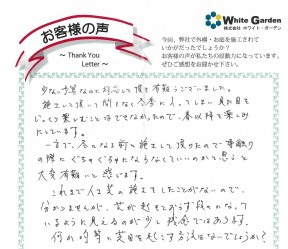 White Garden
株式会社 ホワイト・ガーデン
お客様の声
～ Thank You
Letter ～
今回、弊社で外構・お庭を施工されて
いかがだったでしょうか？
お客様の声が私たちの原動力になっています。
ぜひご感想をお聞かせ下さい。
少ない予算なのに対応して頂き有難うございました。
施工して頂いて間もなく冬季に入ってしまい見た目を
じっくり楽しむことはできなかったので、春以降を楽しみ
にしています。
一方で、冬になる前に施工して頂けたので雪融け
の際にぐちゃぐちゃにならなくていいのかと思うと
大変有難いと感じます。
これまで人工芝の施工をしたことがないので、
分かりませんが、芝が起きておらず段々になって
いるように見えるのが少し残念ではあります。
何か効率に芝目を起こす方法はないでしょうか？